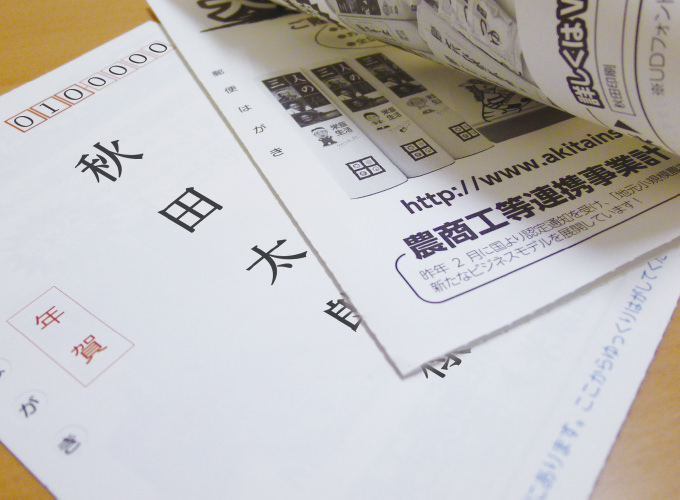 0100000
秋田太郎様
年賀
がき
にあります。ここからゆっくりはがしてくだ
郵便はがき
三人の
三人の
三人の
詳しくはW
秋田印刷
※UDフォント
http://www.akitains
農商工等連携事業計
昨年2月に国より認定通知を受け、「地元小規模農
新たなビジネスモデルを展開しています!